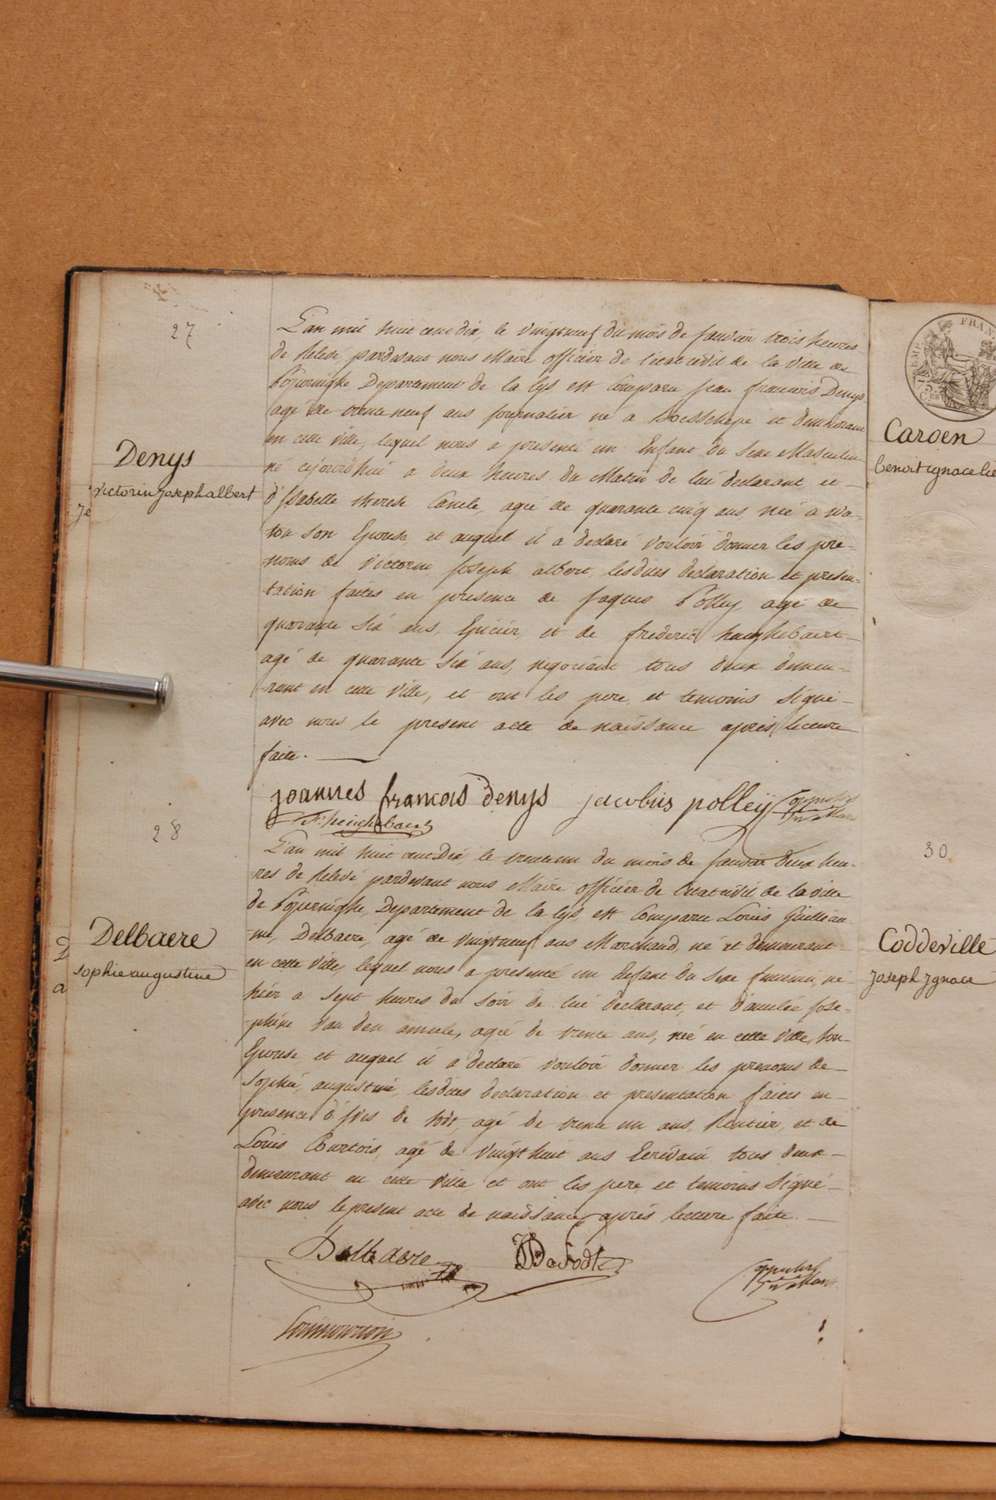 27
Denys
Victorin joseph albert
L'an mil huit cent dix, le vingtneuf du mois de janvier trois heures
de Relevé, pardevant nous Maire officier de l'etat civil de la ville de
Département de la Lys est comparu Jean francois Denys
agé de trente neuf ans journalier né a Boesschepe et demeurant
en cette ville, lequel nous a presenté un Enfant du Sexe Masculin
né cejourd'hui a deux heures du Matin de lui declarant et
d'Isabelle therese agée de quarante cinq ans née a Wa-
tou son Epouse et auquel il a declaré vouloir donner les pre-
noms de Victorin Joseph albert, lesdites declaration et presen-
tation faites en presence de Jaques Polley, agé de
quarante six ans, Epicier, et de frederic heughebaert
agé de quarante six ans, negociant tous deux demeu-
rant en cette ville, et ont les pere et temoins signé
avec nous le present acte de naissance après lecture
faite.
joannes francois denys jacobus polleÿ
28
Delbaere
sophie augustine
2
a
L'an mil huit cent Dix le trente un du mois de janvier deux heu-
res de Relevé pardevant nous Maire officier de l'etat civil de la ville
de Département de la Lys est Comparu Louis Guillau-
me, Delbaere, agé de vingtneuf ans Marchand, né et demeurant
en cette ville, lequel nous a presenté un Enfant du Sexe feminin, né
hier a sept heures du soir de lui declarant, et d'amelie Jose-
phine agée de trente ans, née en cette ville, son
Epouse et auquel il a declaré vouloir donner les prenoms de
Sophie, augustine, lesdites declaration et presentation faites en
presence d'Ives agé de trente un ans, Rentier, et de
Louis Courtois, agé de vingt huit ans Ecrivain tous deux
demeurant en cette ville et ont les pere et temoins signé
avec nous le present acte de naissance après lecture faite.
Delbaere
Caroen
benoit ignace
30
Coddeville
joseph ignace